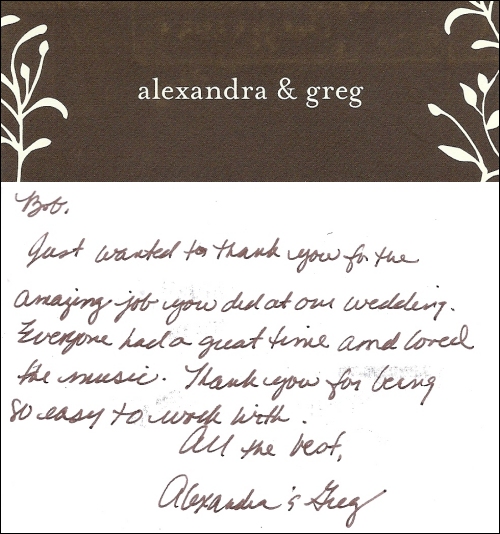 alexandra & greg
Bob,
Just wanted to thank you for the
amazing job you did at our wedding.
Everyone had a great time and loved
the music. Thank you for being
so easy to work with.
All the best,
Alexandra & Greg